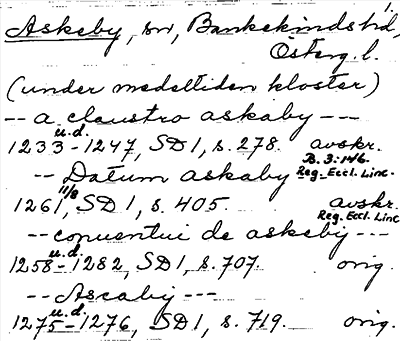 Askeby, sn, Bankekinds hd,
Österg. l.
(under medeltiden kloster)
-- a claustro askaby ---
u.d.
1233 - 1247, SD 1, s. 278. avskr.
B. 3: 146.
-- Datum askaby Reg. Eccl. Linc.
11/8
1261, SD 1, s. 405. avskr.
Reg. Eccl. Linc
-- conuentui de askeby ---
u.d.
1258 - 1282, SD 1, s. 707. orig.
-- Ascaby ---
u.d.
1275 - 1276, SD 1, s. 719. orig.